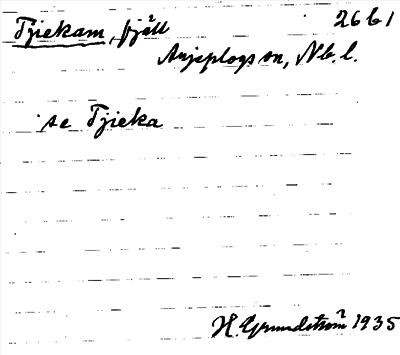 Tjiekam, fjäll 26 b 1
Arjeplogs sn, Nb. l.
se Tjieka
H. Grundström 1935